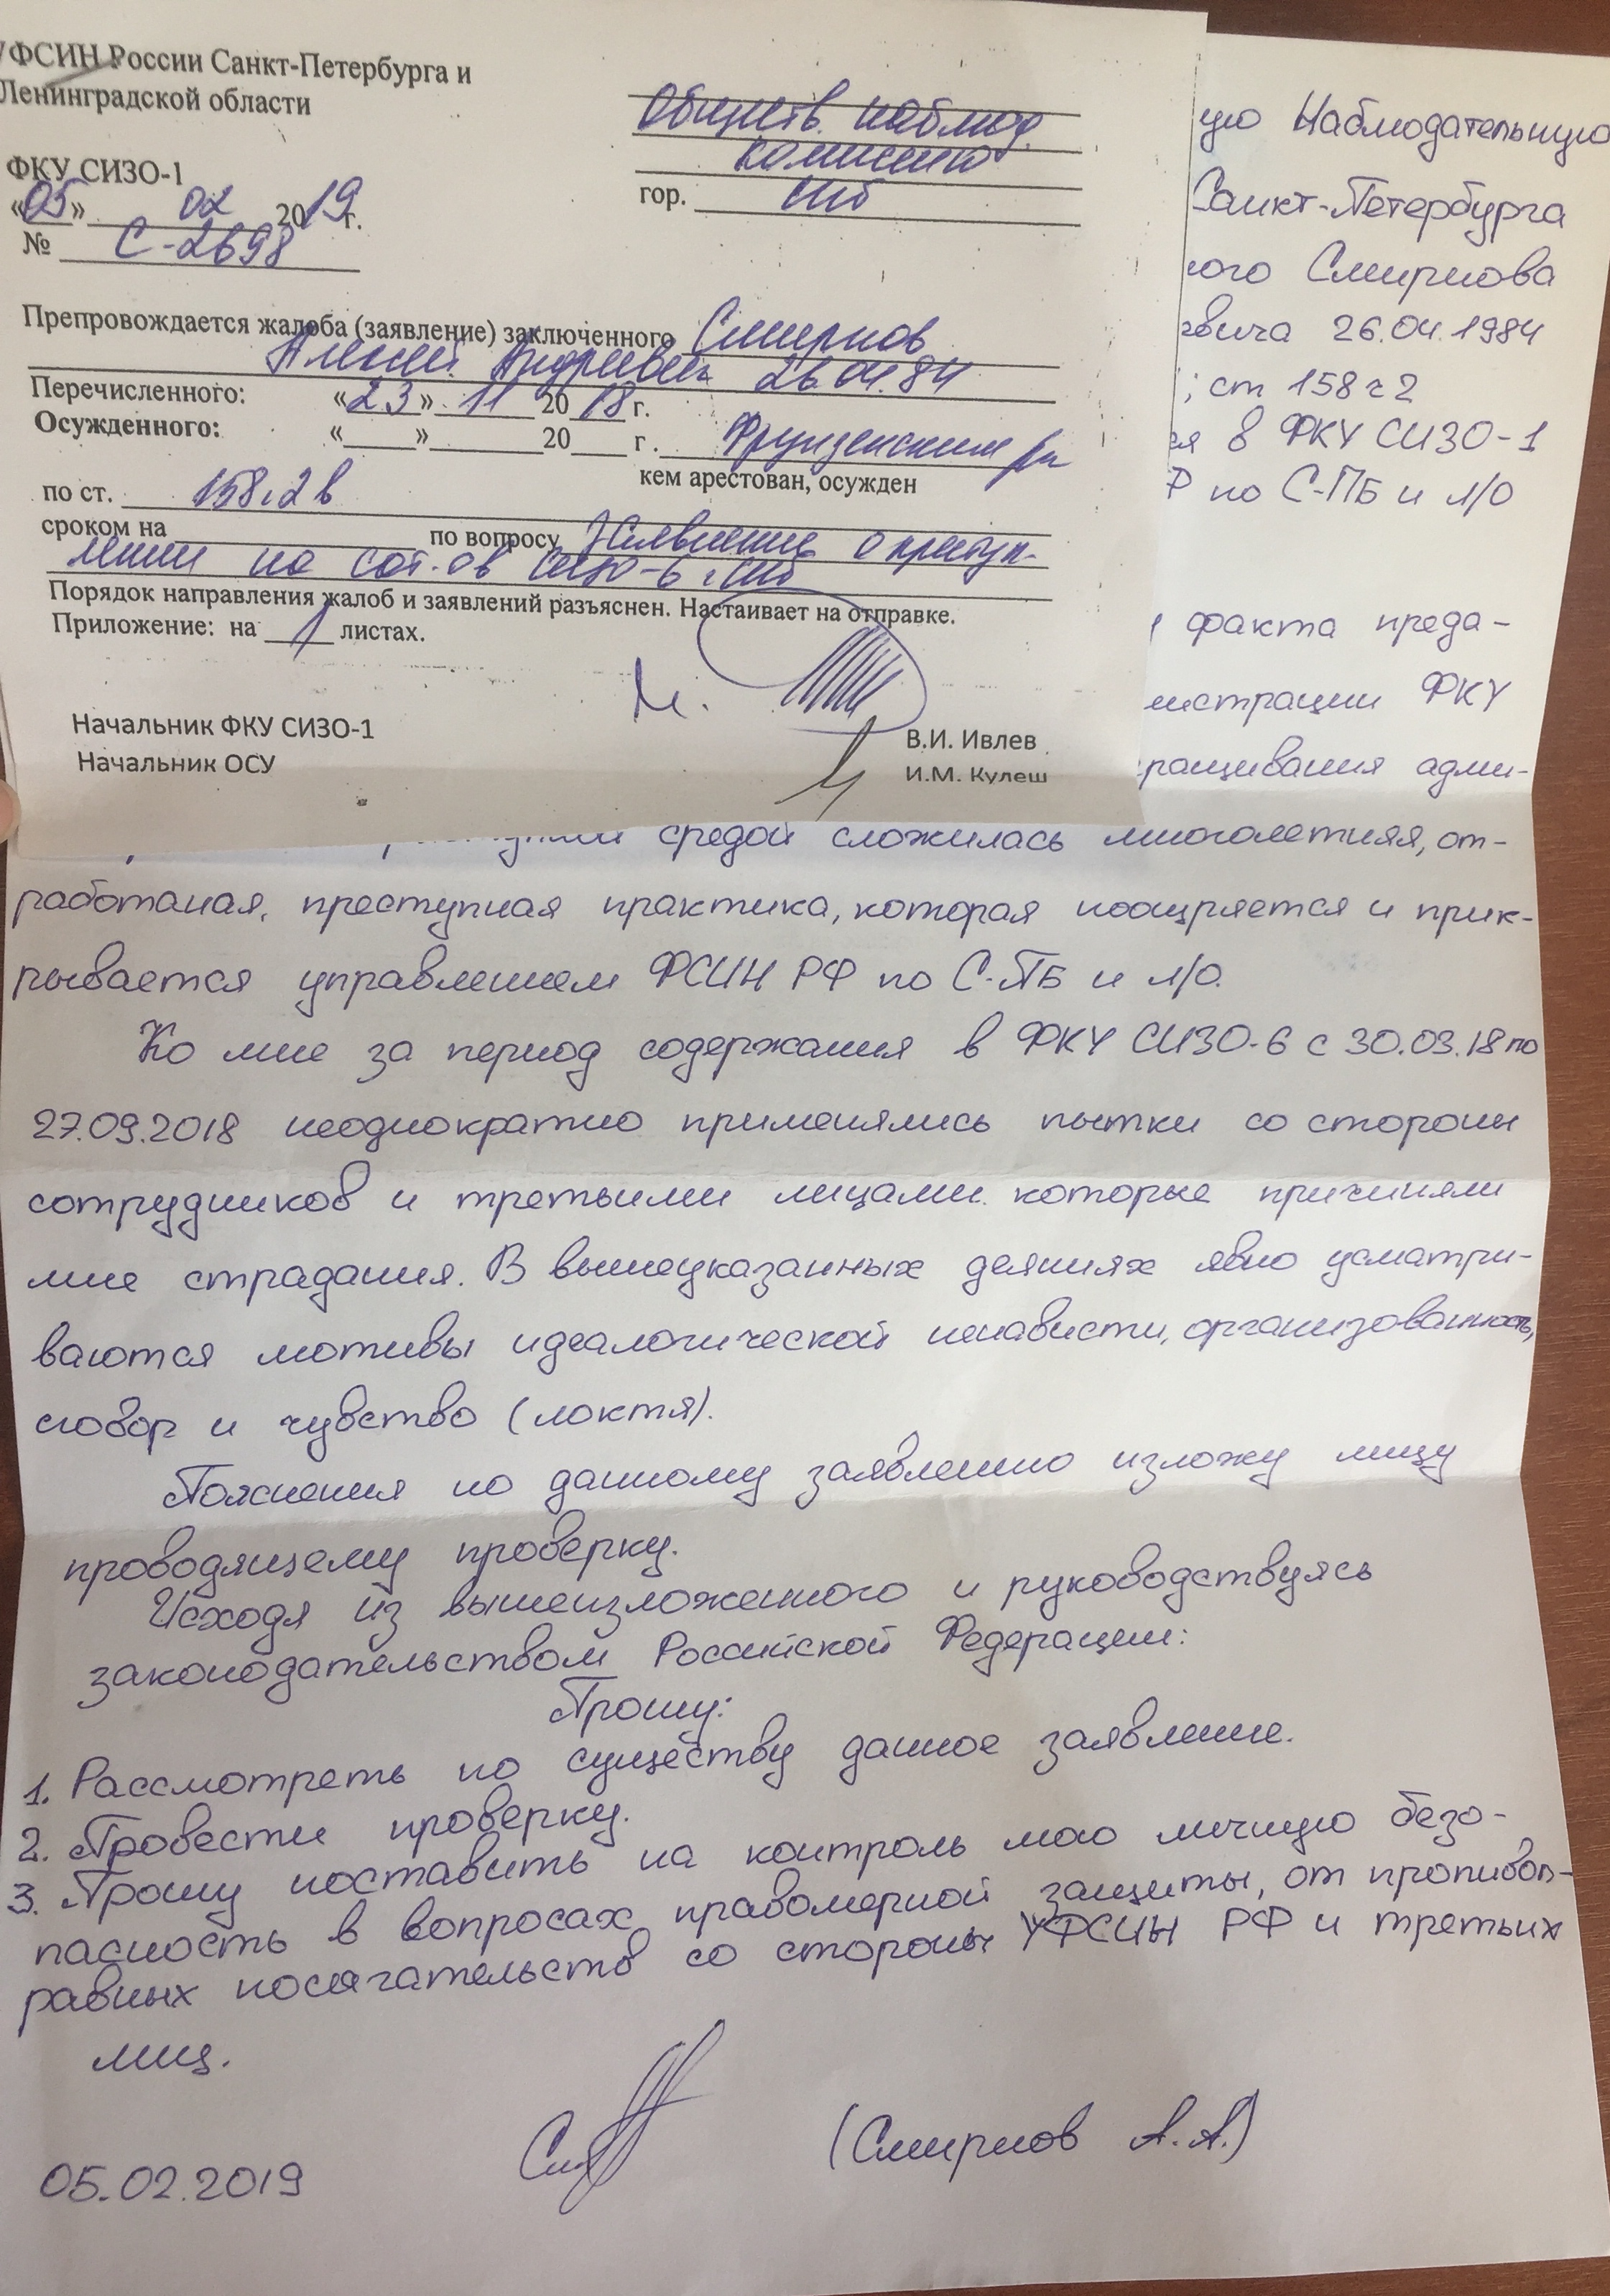 УФСИН России Санкт-Петербурга и
Ленинградской области
ФКУ СИЗО-1
«05» 02 2019 г.
№ С-2698
Обществ. наблюд.
комиссию
гор. СПб
Препровождается жалоба (заявление) заключенного Смирнов
Алексей Андреевич 26.04.84
Перечисленного: «23» 11 2018 г.
Осужденного: «___» ______ 20___ г. Фрунзенским
кем арестован, осужден
по ст. 158.2 в
сроком на ______ по вопросу Заявление о преступ-
лении на сот-ов СИЗО-6 СПб
Порядок направления жалоб и заявлений разъяснен. Настаивает на отправке.
Приложение: на 1 листах.
Начальник ФКУ СИЗО-1 В.И. Ивлев
Начальник ОСУ И.М. Кулеш
ую Наблюдательную
Санкт-Петербурга
ого Смирнова
евича 26.04.1984
; ст 158 ч 2
ся в ФКУ СИЗО-1
Р по С-ПБ и Л/О
факта преда-
истрации ФКУ
ращивания адми-
средой сложилась многолетняя, от-
работаная, преступная практика, которая поощряется и прик-
рывается управлением ФСИН РФ по С-ПБ и Л/О.
Ко мне за период содержания в ФКУ СИЗО-6 с 30.03.18 по
27.09.2018 неоднократно применялись пытки со стороны
сотрудников и третьими лицами. которые причиняли
мне страдания. В вышеуказанных деяниях явно усматри-
ваются мотивы идеалогической ненависти, организованность,
сговор и чувство (локтя).
Пояснения по данному заявлению изложу лицу
проводящему проверку.
Исходя из вышеизложенного и руководствуясь
законодательством Российской Федерации:
Прошу:
1. Рассмотреть по существу данное заявление.
2. Провести проверку.
3. Прошу поставить на контроль мою личную безо-
пасность в вопросах правомерной защиты, от противоп-
равных посягательств со стороны УФСИН РФ и третьих
лиц.
05.02.2019 (Смирнов А.А.)